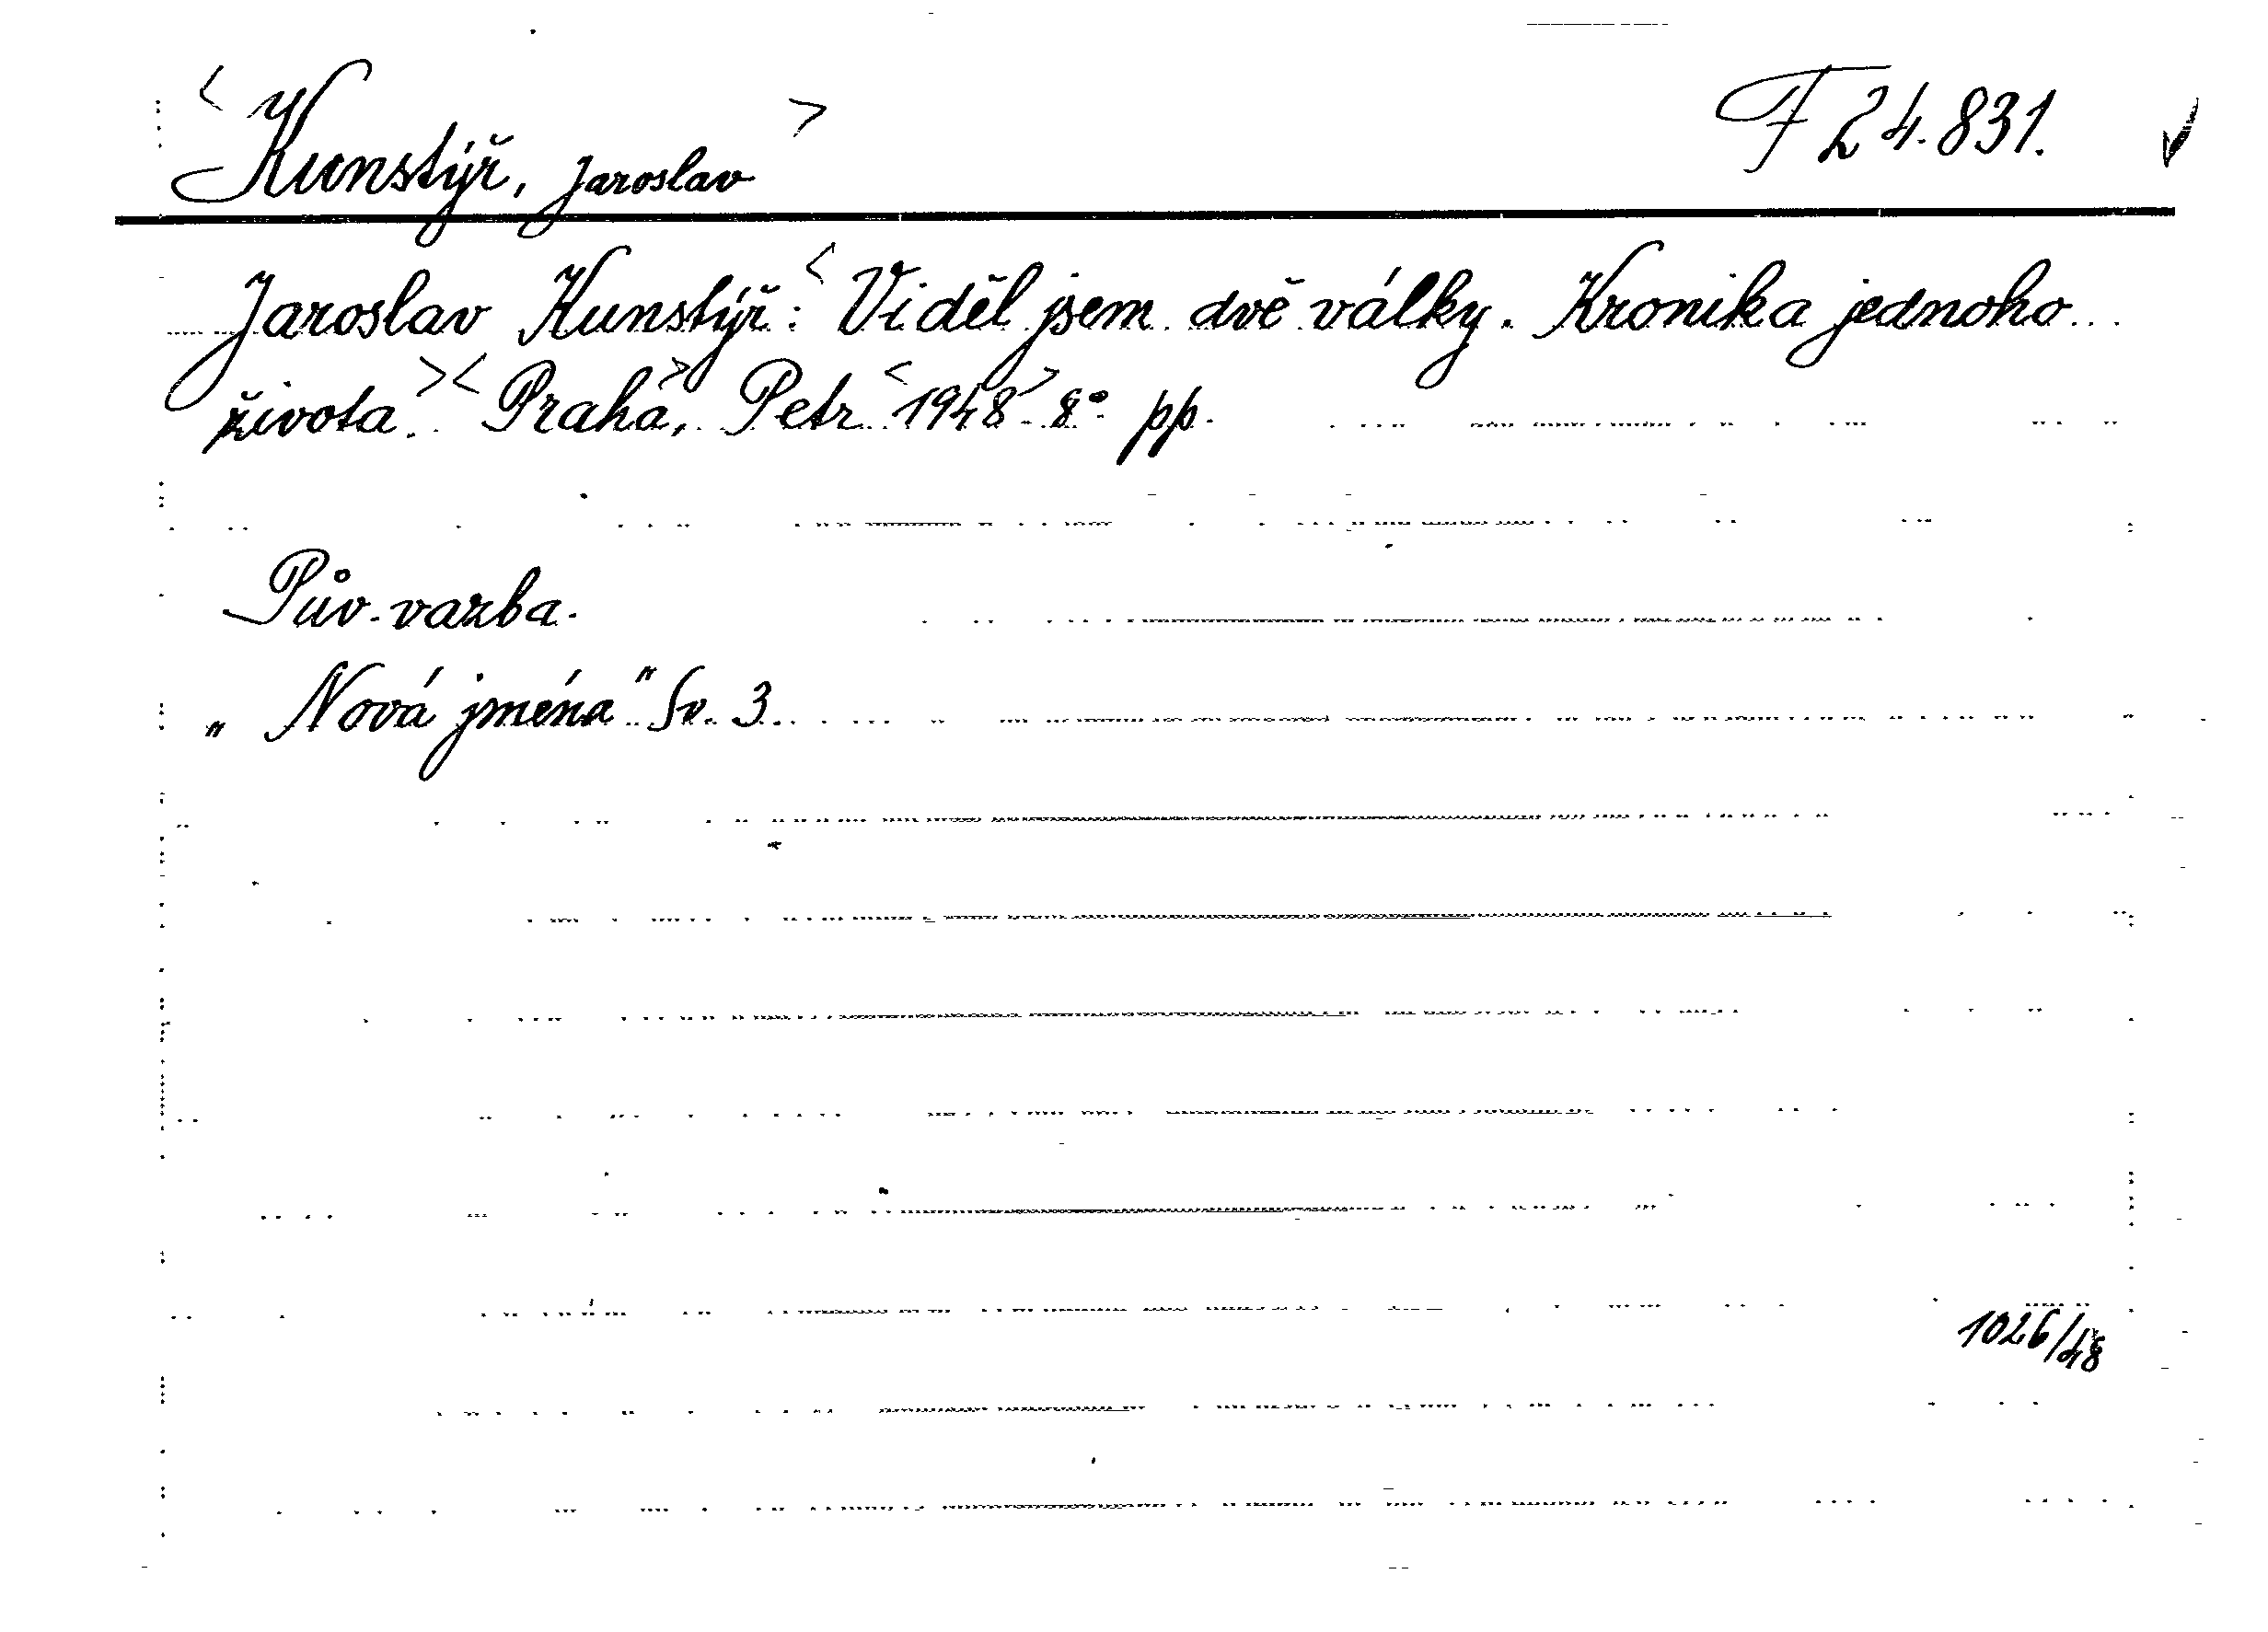 <Kunstýř, Jaroslav> F 24.831.
Jaroslav Kunstýř: <Viděl jsem dvě války. Kronika jednoho
života.><Praha>, Petr <1948> 8° pp.
Pův. vazba.
„Nová jména" Sv. 3.
1026/48